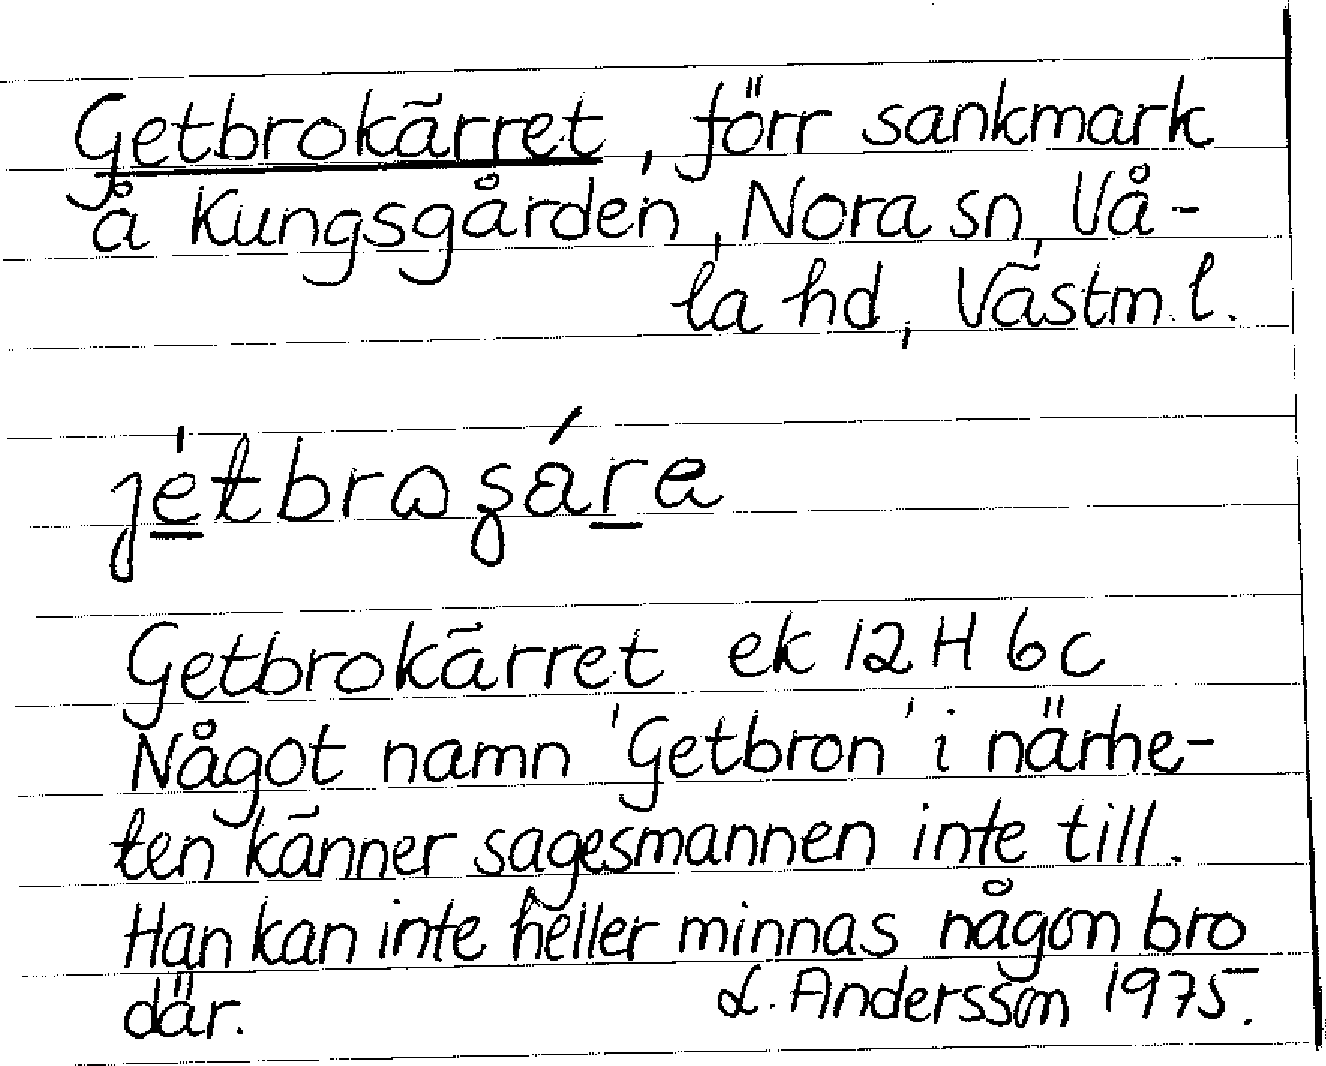 Getbrokärret, förr sankmark
å Kungsgården, Nora sn, Vå-
la hd, Västm. l.
Getbrokärret ek 12 H 6c
Något namn 'Getbron' i närhe-
ten känner sagesmannen inte till.
Han kan inte heller minnas någon bro
där. L. Andersson 1975.